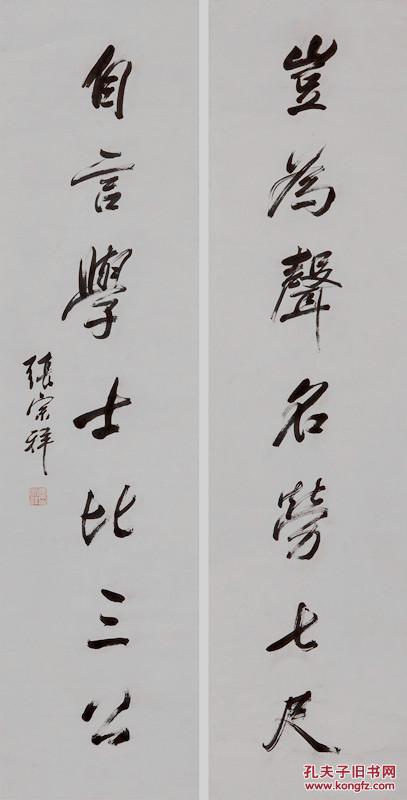 豈為聲名勞七尺
自言學士比三公
張宗祥
孔夫子旧书网
www.kongfz.com